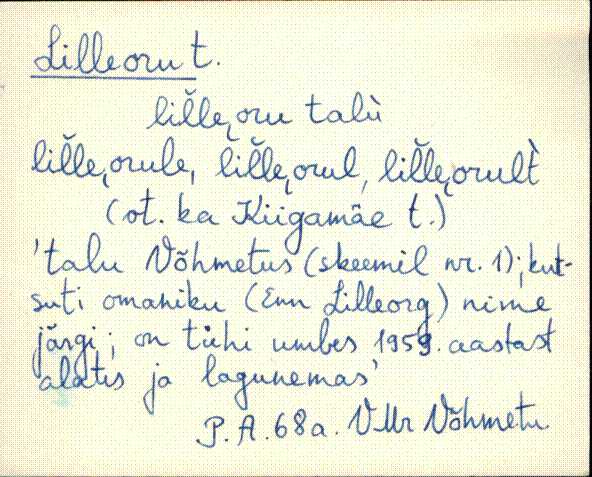 Lilleoru t.
lil̆l̆e˛oru talù
lil̆l̆e˛orule, lil̆l̆e˛orul, lil̆l̆e˛orult̀
(ot. ka Kiigamäe t.)
'talu Võhmetus (skeemil nr. 1); kut-
suti omaniku (Enn Lilleorg) nime
järgi; on tühi umbes 1959. aastast
alates ja lagunemas'
P.A. 68a. VMr Võhmetu